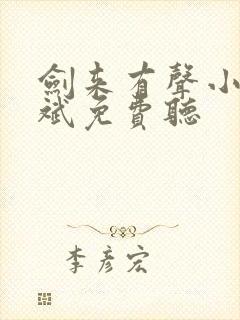 劍来有聲小
斌免費聽
李彥宏